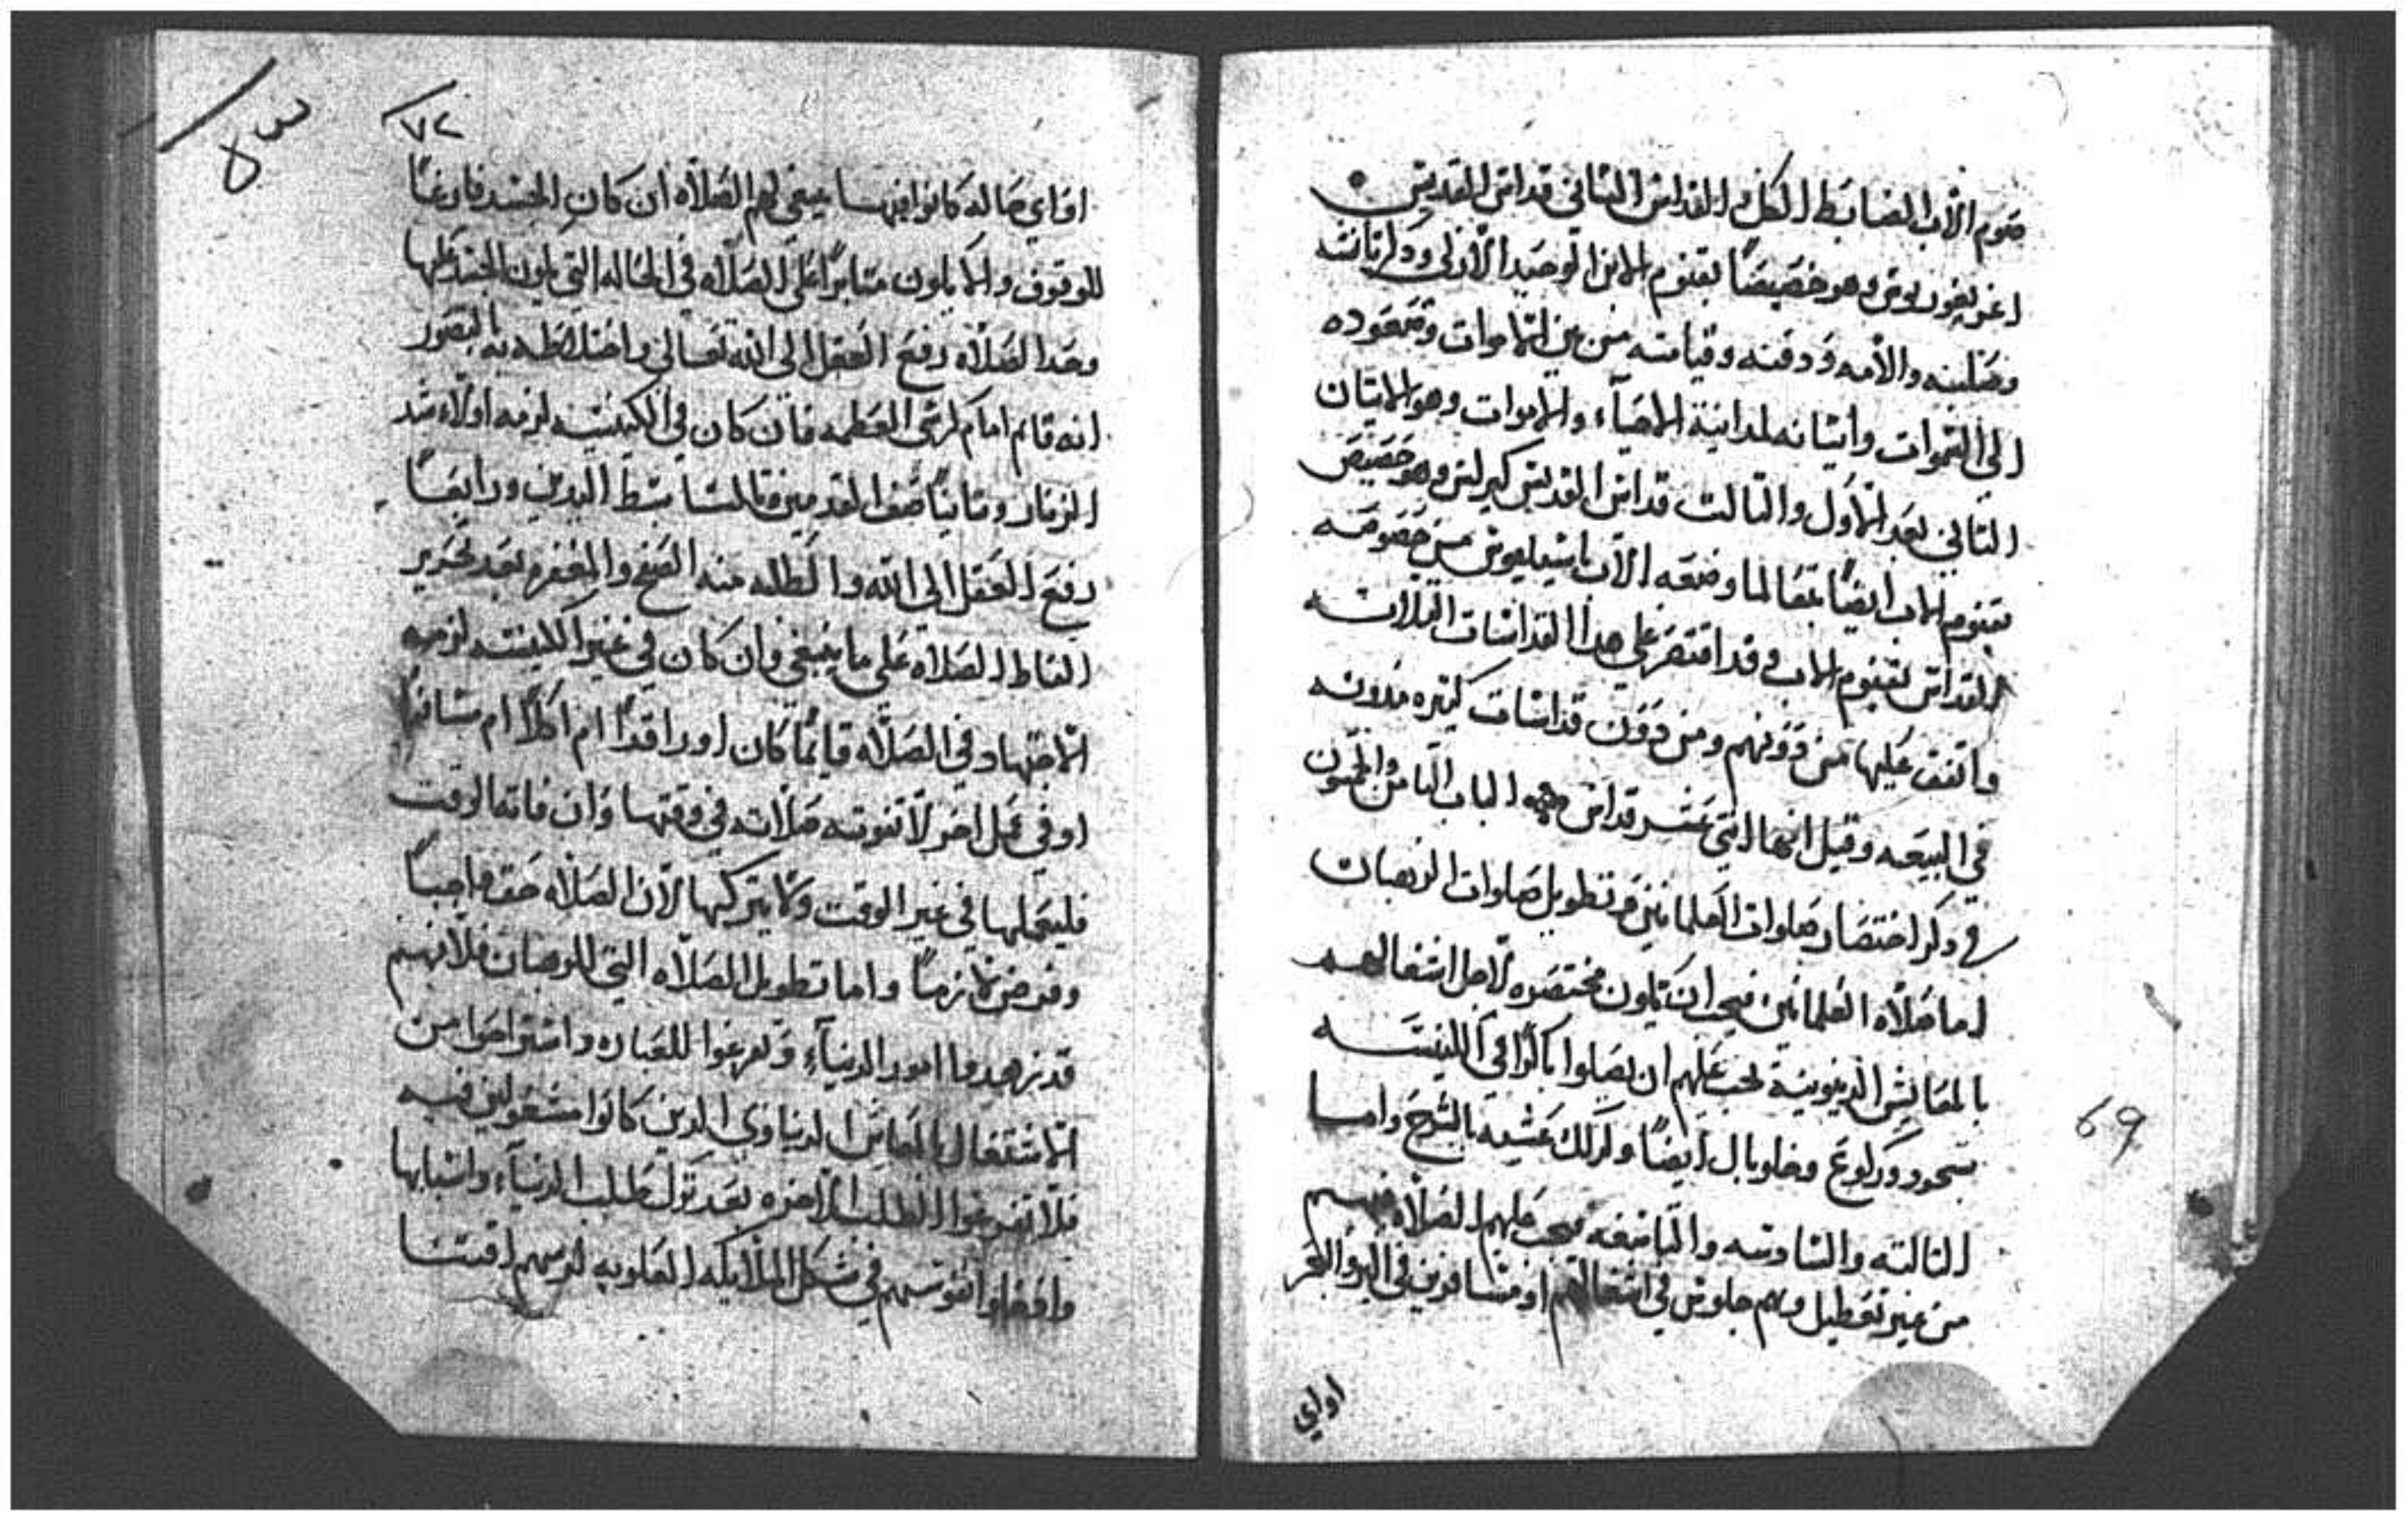 قنوم الاب الضابط الكل والقداس التاني قداس القديس
اغريغوريوس وهو خصيصًا بقنوم الابن الوحيد الازلي ودكر تانسه
وصلبه والامه ودفنه وقيامته من بين الاموات وصعوده
الى السموات واتيانه لمداينة الاحيآء والاموات وهو الاتيان
التاني بعد الاول والتالت قداس القديس كيرلس وهو خصيص
بقنوم الاب ايضًا تبعا لما وضعه الاب باسيليوس من خصوصه
القداس بقنوم الاب وقد اقتصر على هدا القداسات التلاته
واتفق عليها من دونهم ومن دون قداسات كتيره مدونه
في البيعه وقيل انها اتني عشر قداس الباب التامن والخمسون
في دكر اختصار صلوات العلمانيين وتطويل صلوات الرهبان
اما صلاه العلمانيين فيجب ان تكون مختصره لاجل اشتغالهم
بالمعايش الدنيوية يجب عليهم ان يصلوا باكرًا في الكنيسه
بسجود وركوع وخلو بال ايضًا وكدلك عشيه بالشرح واما
التالته والسادسه والتاسعه يجب عليهم الصلاه فيهم
من غير تعطيل وهم جلوس في اشغالهم او مسافرين في البر والبحر
اواي
69
٧٢
اواي حاله كانوا فيها ينبغي لهم الصلاه ان كان الجسد فارغًا
للوقوف والا يكون متابرًا على الصلاه في الحاله التي يكون الجسد عليها
وحد الصلاه رفع العقل الى الله تعالى واختلاطه به بالتصور
انه قايم امام كرسي العظمه فان كان في الكنيسه لزمه اولًا شد
الزنار وتانيًا صف القدمين وتالتًا بسط اليدين ورابعًا
رفع العقل الى الله والطلبه منه الصفح والمغفره بعد تحرير
الفاظ الصلاه على ما ينبغي وان كان في غير الكنيسه لزمه
الاجتهاد في الصلاه قايمًا كان او راقدًا ام اكلًا ام مسافرًا
او في عمل اخر لا تفوته صلاته في وقتها وان فاتها الوقت
فليعملها في غير الوقت ولا يتركها لان الصلاه حق واجبًا
وفرض لازمًا واما تطويل الصلاه التي للرهبان فلانهم
قد زهدوا امور الدنيآء وتفرغوا للعباده واستراحوا من
الاشتغال بالمعاش الدنياوي الدين كانوا مشغولين فيه
فلا تفرغوا لطلب الاخره بعد ترك طلب الدنيآء واسبابها
وادخلوا نفوسهم في شكل الملايكه العلويه لزمهم اقتنا